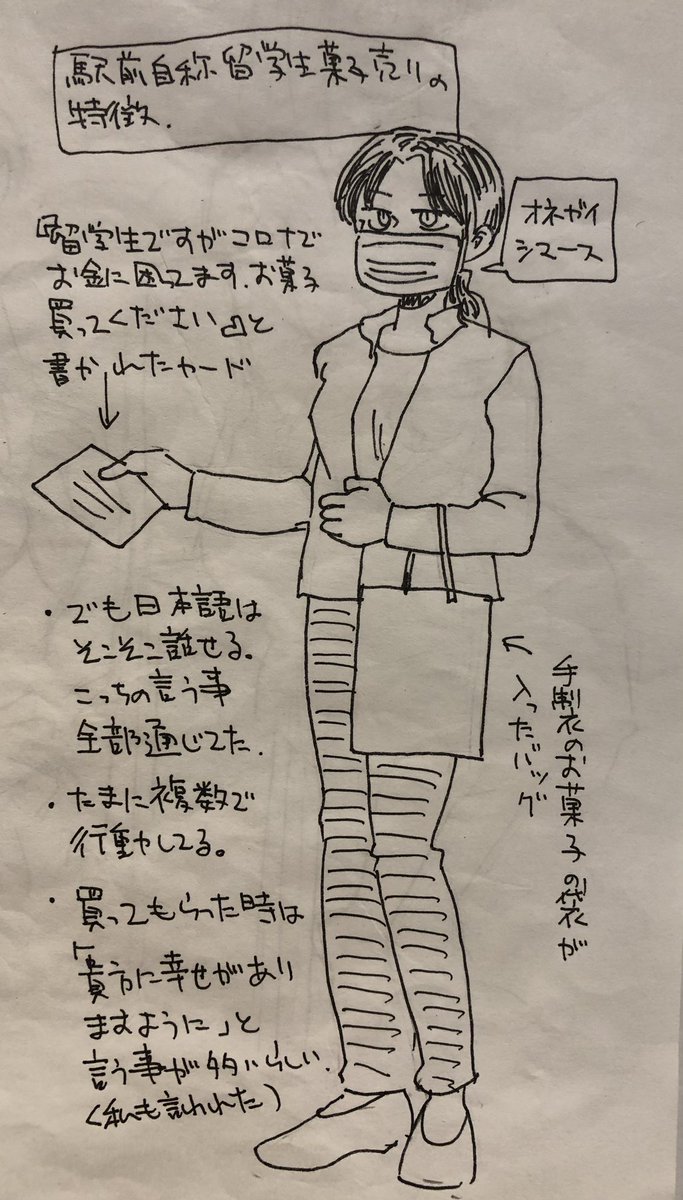 駅前自称留学生菓子売りの
特徴.
オネガイ
シマース
『留学生ですがコロナで
お金に困ってます.お菓子
買ってください』と
書かれたカード
・でも日本語は
そこそこ話せる。
こっちの言う事
全部通じてた.
・たまに複数で
行動してる。
・買ってもらった時は
「貴方に幸せがあり
ますように」と
言う事が多いらしい.
(私も言われた)
手製のお菓子の袋が
入ったバッグ